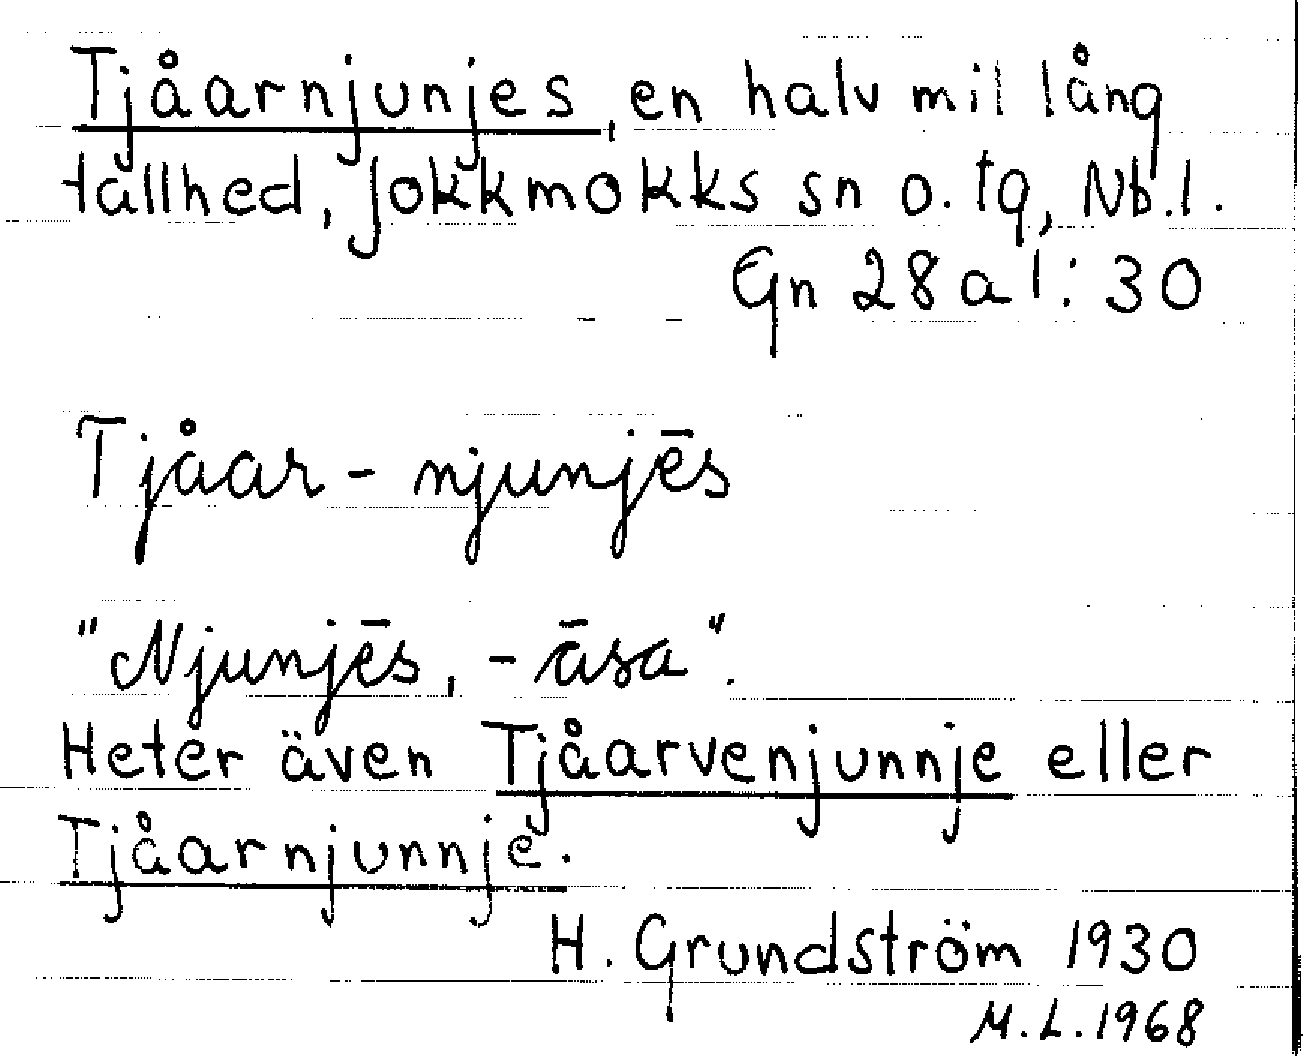 Tjåarnjunjes, en halv mil lång
tallhed, Jokkmokks sn o. tg, Nb.l.
Gn 28 a 1:30
Tjåar-njunjēs
"Njunjēs, -āsa".
Heter även Tjåarvenjunnje eller
Tjåarnjunnje.
H. Grundström 1930
M.L.1968